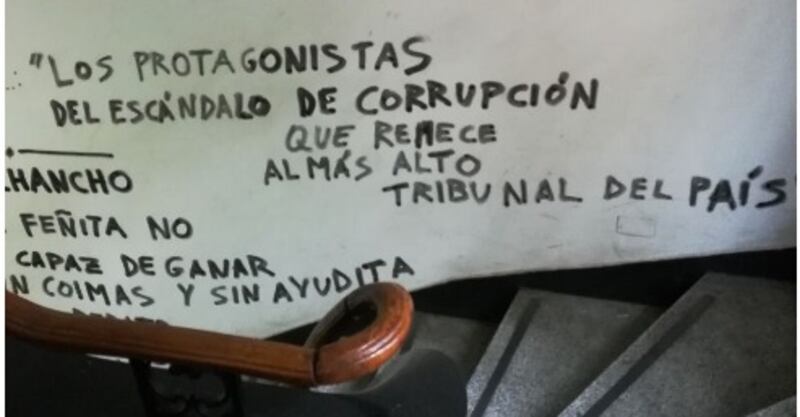 "LOS PROTAGONISTAS
DEL ESCÁNDALO DE CORRUPCIÓN
QUE REMECE
AL MÁS ALTO
TRIBUNAL DEL PAÍS
HANCHO
FEÑITA NO
CAPAZ DE GANAR
N COIMAS Y SIN AYUDITA